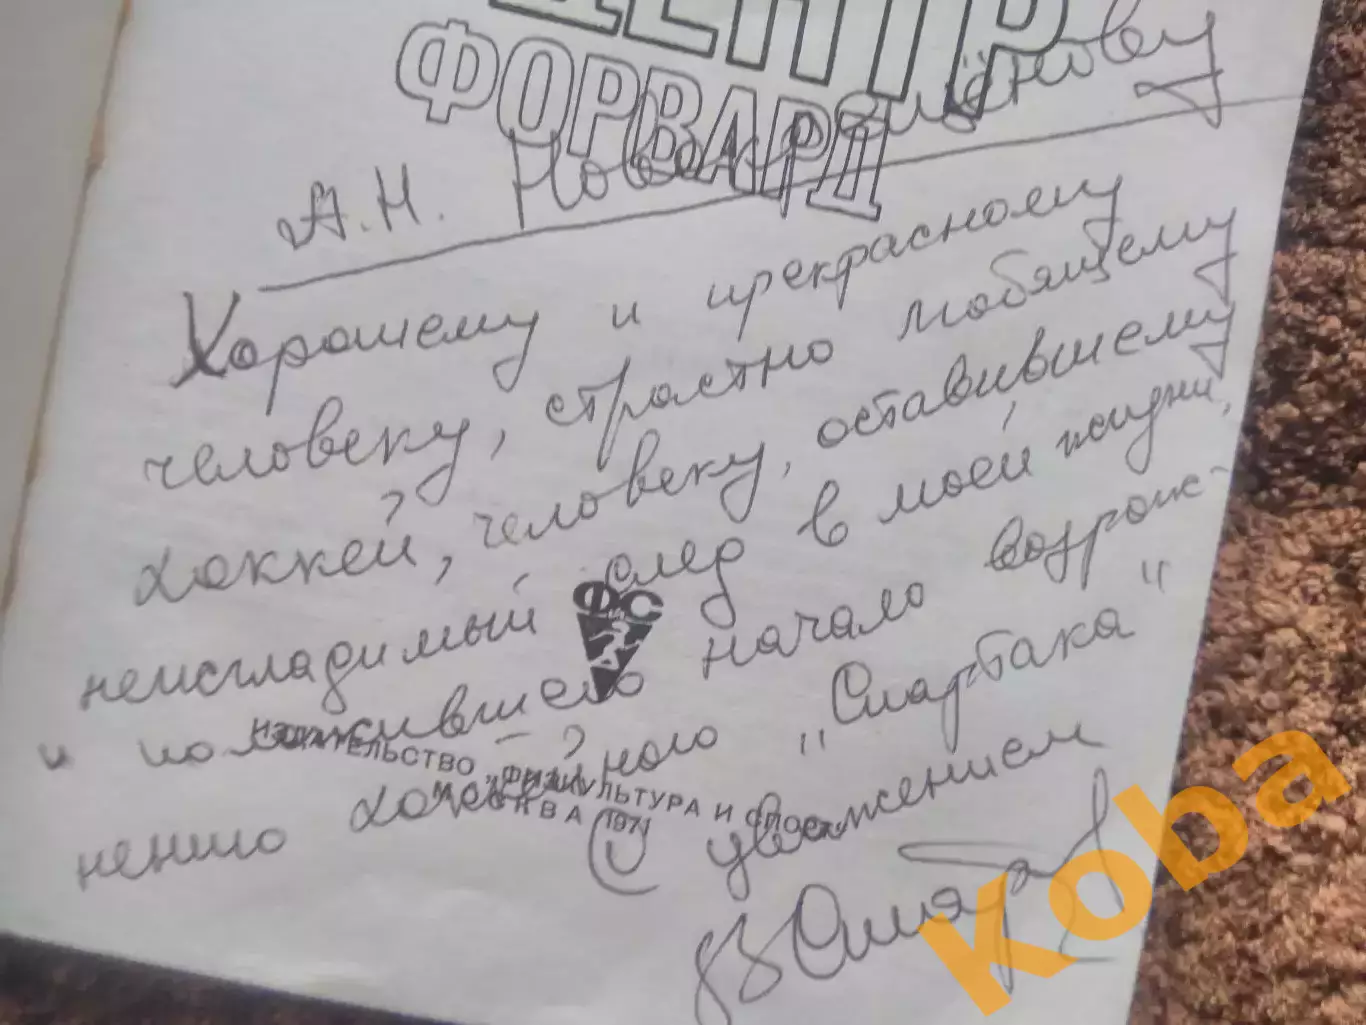 ЦЕНТР
ФОРВАРД
А.Н. Новокрещёнову
Хорошему и прекрасному
человеку, страстно любящему
хоккей, человеку, оставившему
неизгладимый след в моей жизни,
и положившего начало возрож-
нению хоккейного „Спартака"
С уважением
ФиС
ИЗДАТЕЛЬСТВО „ФИЗКУЛЬТУРА И СПОРТ"
МОСКВА 1971
Koba